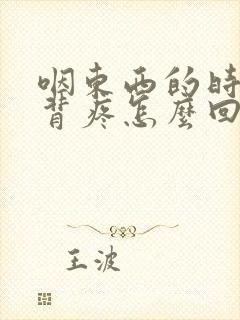 咽東西的時
背疼怎麼回
王波